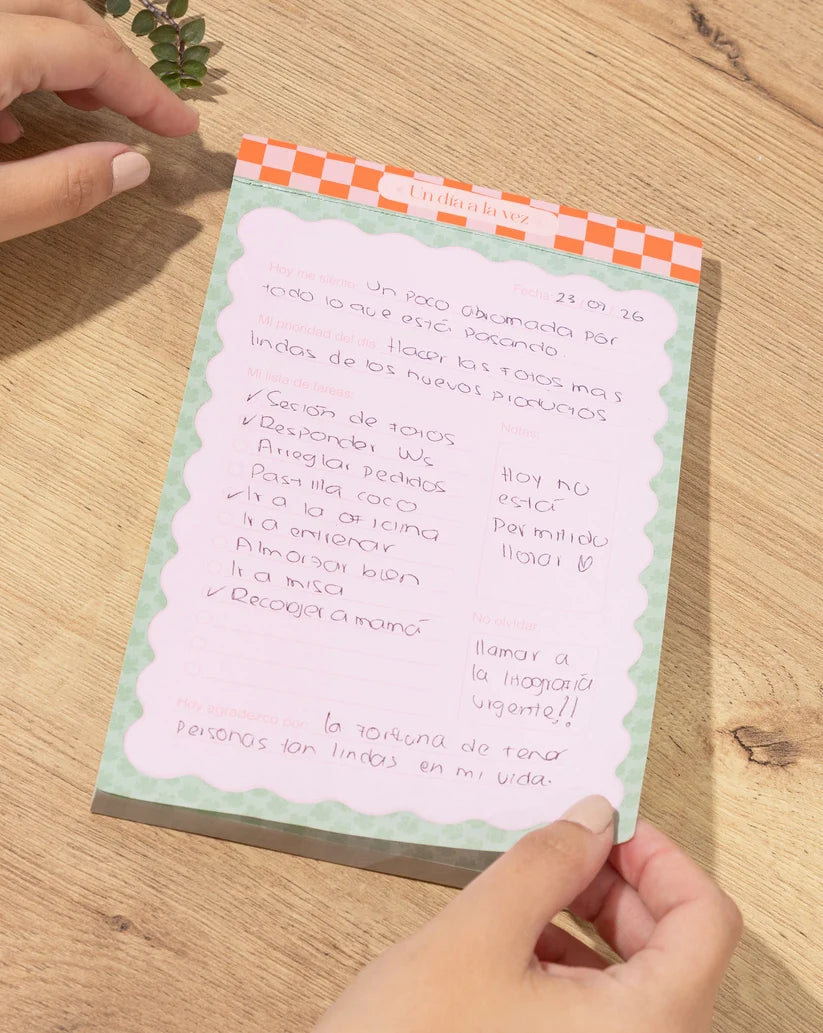 Un día a la vez
Fecha: 23 / 09 / 26
Hoy me siento: Un poco abrumada por
todo lo que está pasando.
Mi prioridad del día: Hacer las fotos mas
lindas de los nuevos productos
Mi lista de tareas:
✓ Sesión de fotos
✓ Responder Ws
Arreglar pedidos
Pastilla coco
✓ Ir a la oficina
Ir a entrenar
Almorzar bien
Ir a misa
✓ Recoger a mamá
Notas:
Hoy no
está
permitido
llorar ♡
No olvidar:
llamar a
la litografía
urgente!!
Hoy agradezco por: la fortuna de tener
personas tan lindas en mi vida.